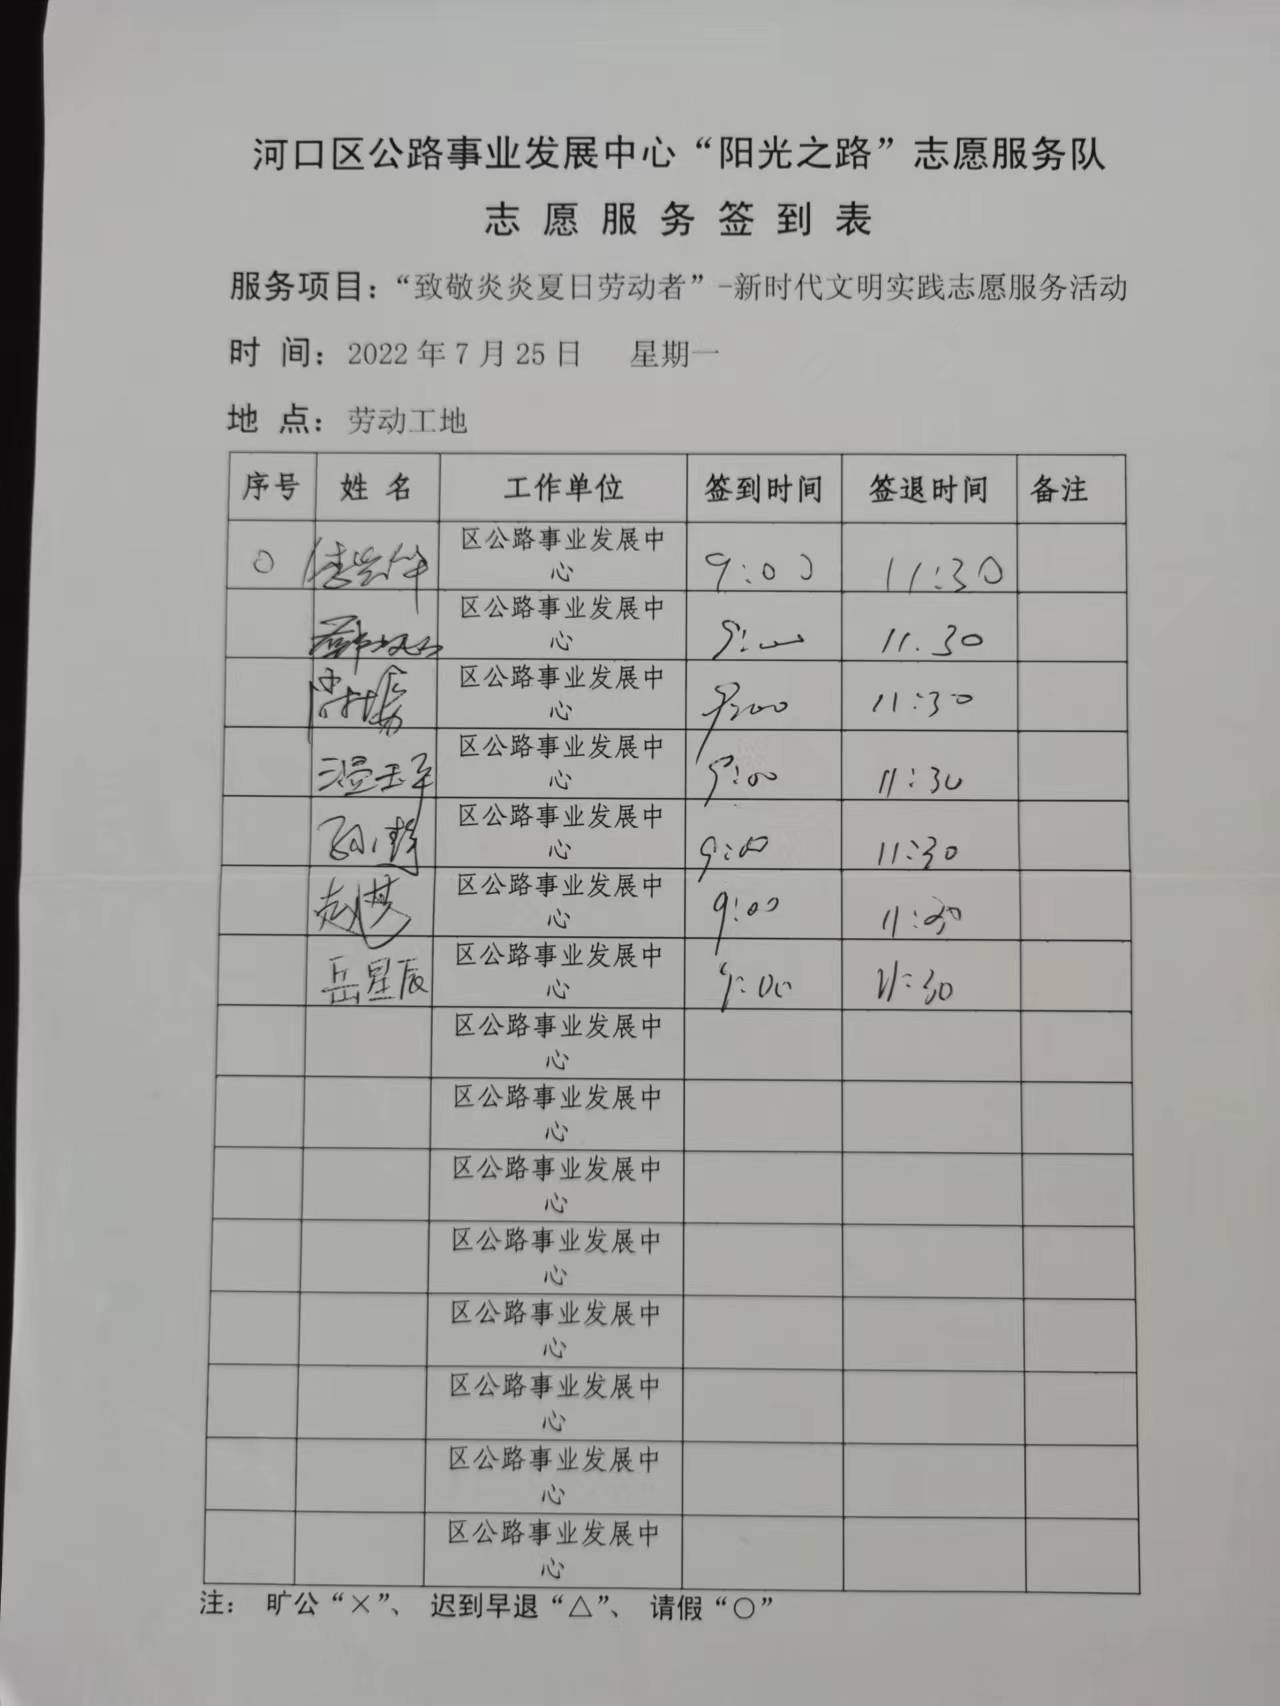 河口区公路事业发展中心“阳光之路”志愿服务队
志愿服务签到表
服务项目：“致敬炎炎夏日劳动者”-新时代文明实践志愿服务活动
时 间：2022年7月25日 星期一
地 点：劳动工地
序号 姓名 工作单位 签到时间 签退时间 备注
○ 区公路事业发展中 9:00 11:30
心
区公路事业发展中 11.30
心
区公路事业发展中 9:00 11:30
心
温玉军 区公路事业发展中 9:00 11:30
心
区公路事业发展中 9:00 11:30
心
区公路事业发展中 9:00 11:30
心
岳星辰 区公路事业发展中 9:00 11:30
心
区公路事业发展中
心
区公路事业发展中
心
区公路事业发展中
心
区公路事业发展中
心
区公路事业发展中
心
区公路事业发展中
心
区公路事业发展中
心
区公路事业发展中
心
注： 旷公“×”、 迟到早退“△”、 请假“○”